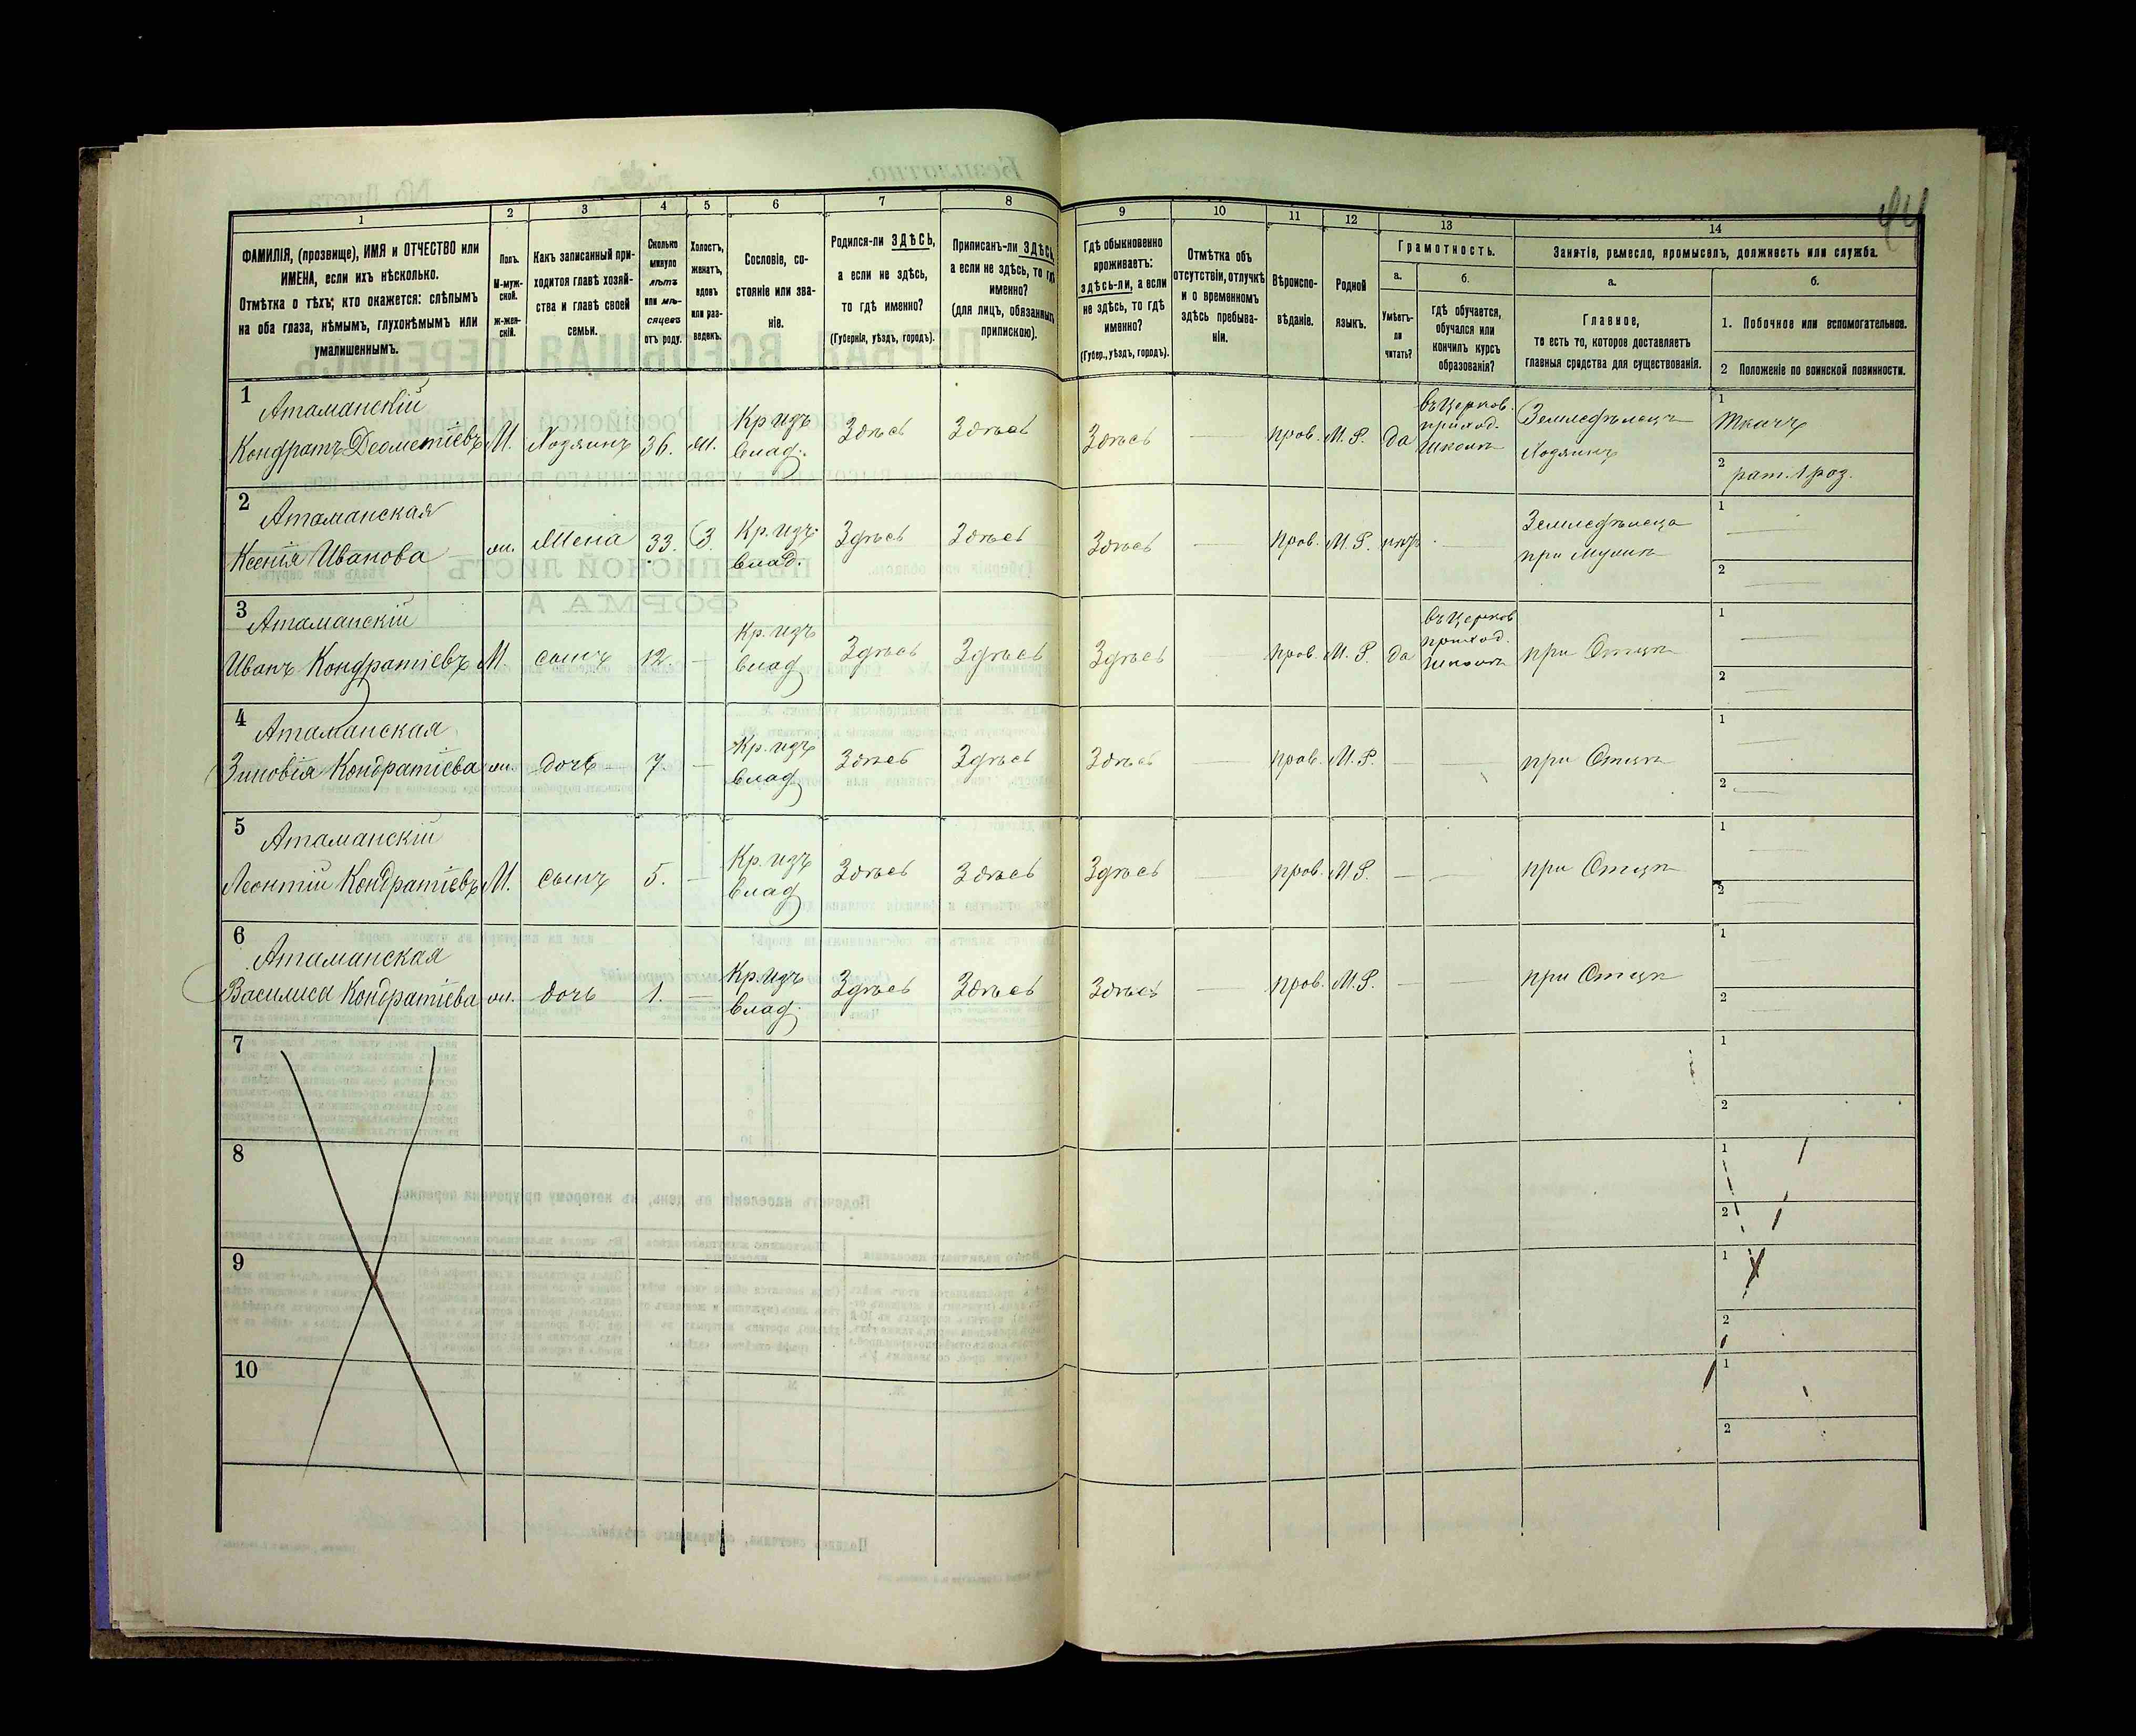 1
2
3
4
5
6
7
8
ФАМИЛІЯ, (прозвище), ИМЯ и ОТЧЕСТВО или
ИМЕНА, если ихъ нѣсколько.
Отмѣтка о тѣхъ; кто окажется: слѣпымъ
на оба глаза, нѣмымъ, глухонѣмымъ или
умалишеннымъ.
Полъ.
М-муж-
ской.
ж-жен-
скій.
Какъ записанный при-
ходится главѣ хозяй-
ства и главѣ своей
семьи.
Сколько
минуло
лѣтъ
или мѣ-
сяцевъ
отъ роду.
Холостъ,
женатъ,
вдовъ
или раз-
веденъ.
Сословіе, со-
стояніе или зва-
ніе.
Родился-ли ЗДѢСЬ,
а если не здѣсь,
то гдѣ именно?
(Губернія, уѣздъ, городъ).
Приписанъ-ли ЗДѢСЬ,
а если не здѣсь, то гдѣ
именно?
(для лицъ, обязанныхъ
припискою).
9
10
11
12
13
14
Гдѣ обыкновенно
проживаетъ:
здѣсь-ли, а если
не здѣсь, то гдѣ
именно?
(Губер., уѣздъ, городъ).
Отмѣтка объ
отсутствіи, отлучкѣ
и о временномъ
здѣсь пребыва-
ніи.
Вѣроиспо-
вѣданіе.
Родной
языкъ.
Грамотность.
а.
б.
Умѣетъ-
ли
читать?
гдѣ обучается,
обучался или
кончилъ курсъ
образованія?
Занятіе, ремесло, промыселъ, должность или служба.
а.
б.
Главное,
то есть то, которое доставляетъ
главныя средства для существованія.
1. Побочное или вспомогательное.
2 Положеніе по воинской повинности.
1
Атаманскій
Кондратъ М. Хозяинъ 36. Кр изъ влад. Здѣсь Здѣсь Здѣсь — прав. М. Р. да въ Церков. приход. школѣ Земледѣлецъ Хозяинъ
1 Ткачъ
2 рат. 1 раз.
2
Атаманская
Ксенія Иванова ж. Жена 33. 3. Кр. изъ влад. Здѣсь Здѣсь Здѣсь — прав. М. Р. — Земледѣлица при Мужѣ
1 —
2 —
3
Атаманскій
Иванъ Кондратіевъ М. сынъ 12. — Кр. изъ влад Здѣсь Здѣсь Здѣсь — прав. М. Р. да въ Церков приход. школѣ при Отцѣ
1 —
2 —
4
Атаманская
Зиновія Кондратіева ж. дочь 7. — Кр. изъ влад Здѣсь Здѣсь Здѣсь — прав. М. Р. — — при Отцѣ
1 —
2 —
5
Атаманскій
Леонтій Кондратіевъ М. сынъ 5. — Кр. изъ влад Здѣсь Здѣсь Здѣсь — прав. М Р. — — при Отцѣ
1 —
2 —
6
Атаманская
Василиса Кондратіева ж. дочь 1. — Кр. изъ влад. Здѣсь Здѣсь Здѣсь — прав. М. Р. — — при Отцѣ
1 —
2 —
7
1
2
8
1
2
9
1
2
10
1
2